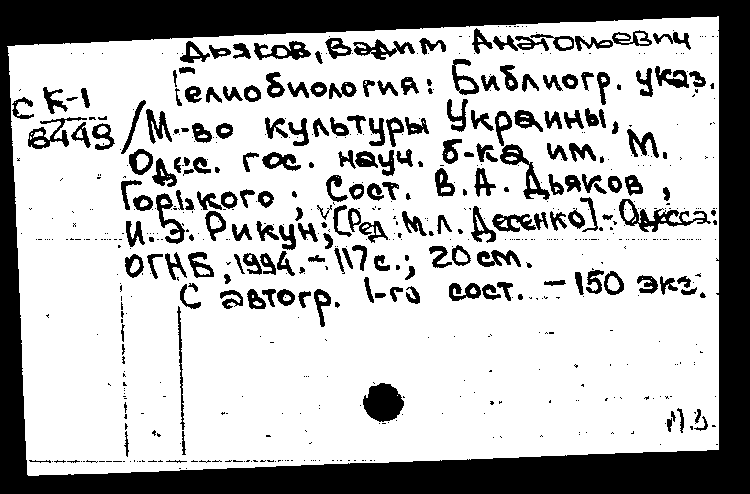 Дьяков, Вадим Анатольевич
Гелиобиология: Библиогр. указ.
С К-1
8449
/М-во культуры Украины,
Одес. гос. науч. б-ка им. М.
Горького; Сост. В.А. Дьяков,
И.Э. Рикун; [Ред. М.Л. Десенко]. - Одесса:
ОГНБ, 1994. - 117 с.; 20 см.
С автогр. 1-го сост. - 150 экз.